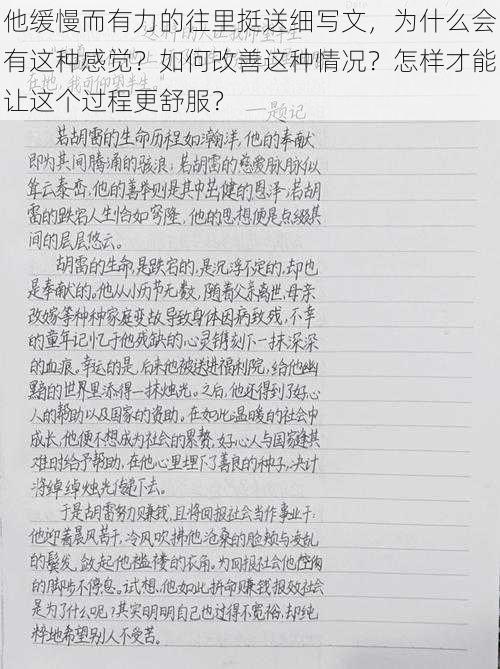 他缓慢而有力的往里挺送细写文，为什么会
有这种感觉？如何改善这种情况？怎样才能
让这个过程更舒服？
——题记
若胡雷的生命历程如瀚洋，他的奉献
即为其间腾涌的骇浪；若胡雷的慈爱脉脉似
耸云泰峦，他的善举则是其中出健的恩泽；若胡
雷的跌宕人生恰如穹隆，他的思想便是点缀其
间的层层悠云。
胡雷的生命，是跌宕的，是沉浮不定的，却也
是奉献的。他从小历节无数，随着父亲离世，母亲
改嫁等种种家庭变故导致身体因病致残，不幸
的童年记忆于他残缺的心灵镌刻下一抹深深
的血痕。幸运的是，后来他被送进福利院，给他幽
黯的世界里添得一抹烛光。之后，他还得到了好心
人的帮助以及国家的资助。在如此温暖的社会中
成长，他便不想成为社会的累赘，好心人与国家逢其
难时给予帮助，在他心里埋下了善良的种子，决计
将绰绰烛光传递下去。
于是胡雷努力赚钱，且将回报社会当作事业干：
他迎着晨风苦干，冷风吹拂他沧桑的脸颊与凌乱
的鬓发，敛起他褴褛的衣角。为回报社会他佝偻
的脚步不停息。试想，他如此拼命赚钱报效社会
是为了什么呢？其实明明自己也过得不宽裕，却纯
粹地希望别人不受苦。